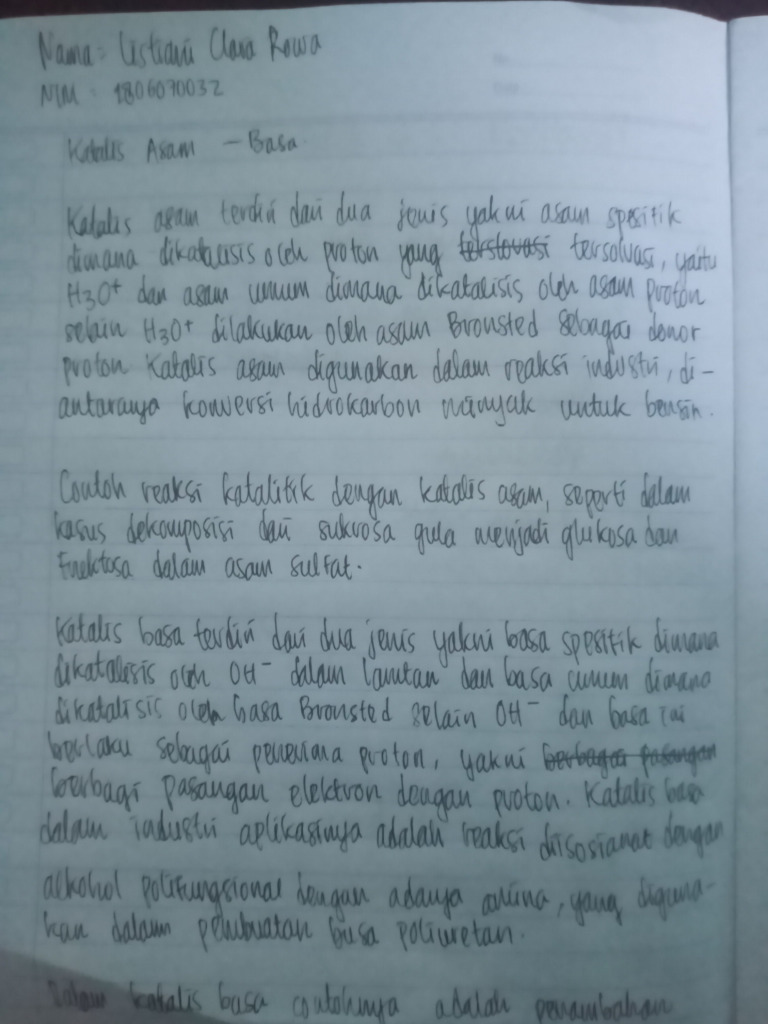 Nama: Listiani Clara Rowa
NIM : 1806070032
Katalis Asam - Basa.
Katalis asam terdiri dari dua jenis yakni asam spesifik
dimana dikatalisis oleh proton yang tersolvasi, yaitu
H3O+ dan asam umum dimana dikatalisis oleh asam proton
selain H3O+ dilakukan oleh asam Bronsted sebagai donor
proton Katalis asam digunakan dalam reaksi industri, di-
antaranya konversi hidrokarbon minyak untuk bensin.
Contoh reaksi katalitik dengan katalis asam, seperti dalam
kasus dekomposisi dari sukrosa gula menjadi glukosa dan
fruktosa dalam asam sulfat.
Katalis basa terdiri dari dua jenis yakni basa spesifik dimana
dikatalisis oleh OH- dalam larutan dan basa umum dimana
dikatalisis oleh basa Bronsted selain OH- dan basa ini
berlaku sebagai penerima proton, yakni berbagai pasangan
berbagi pasangan elektron dengan proton. Katalis basa
dalam industri aplikasinya adalah reaksi diisosianat dengan
alkohol polifungsional dengan adanya amina, yang diguna-
kan dalam pembuatan busa poliuretan.
Dalam katalis basa contohnya adalah penambahan